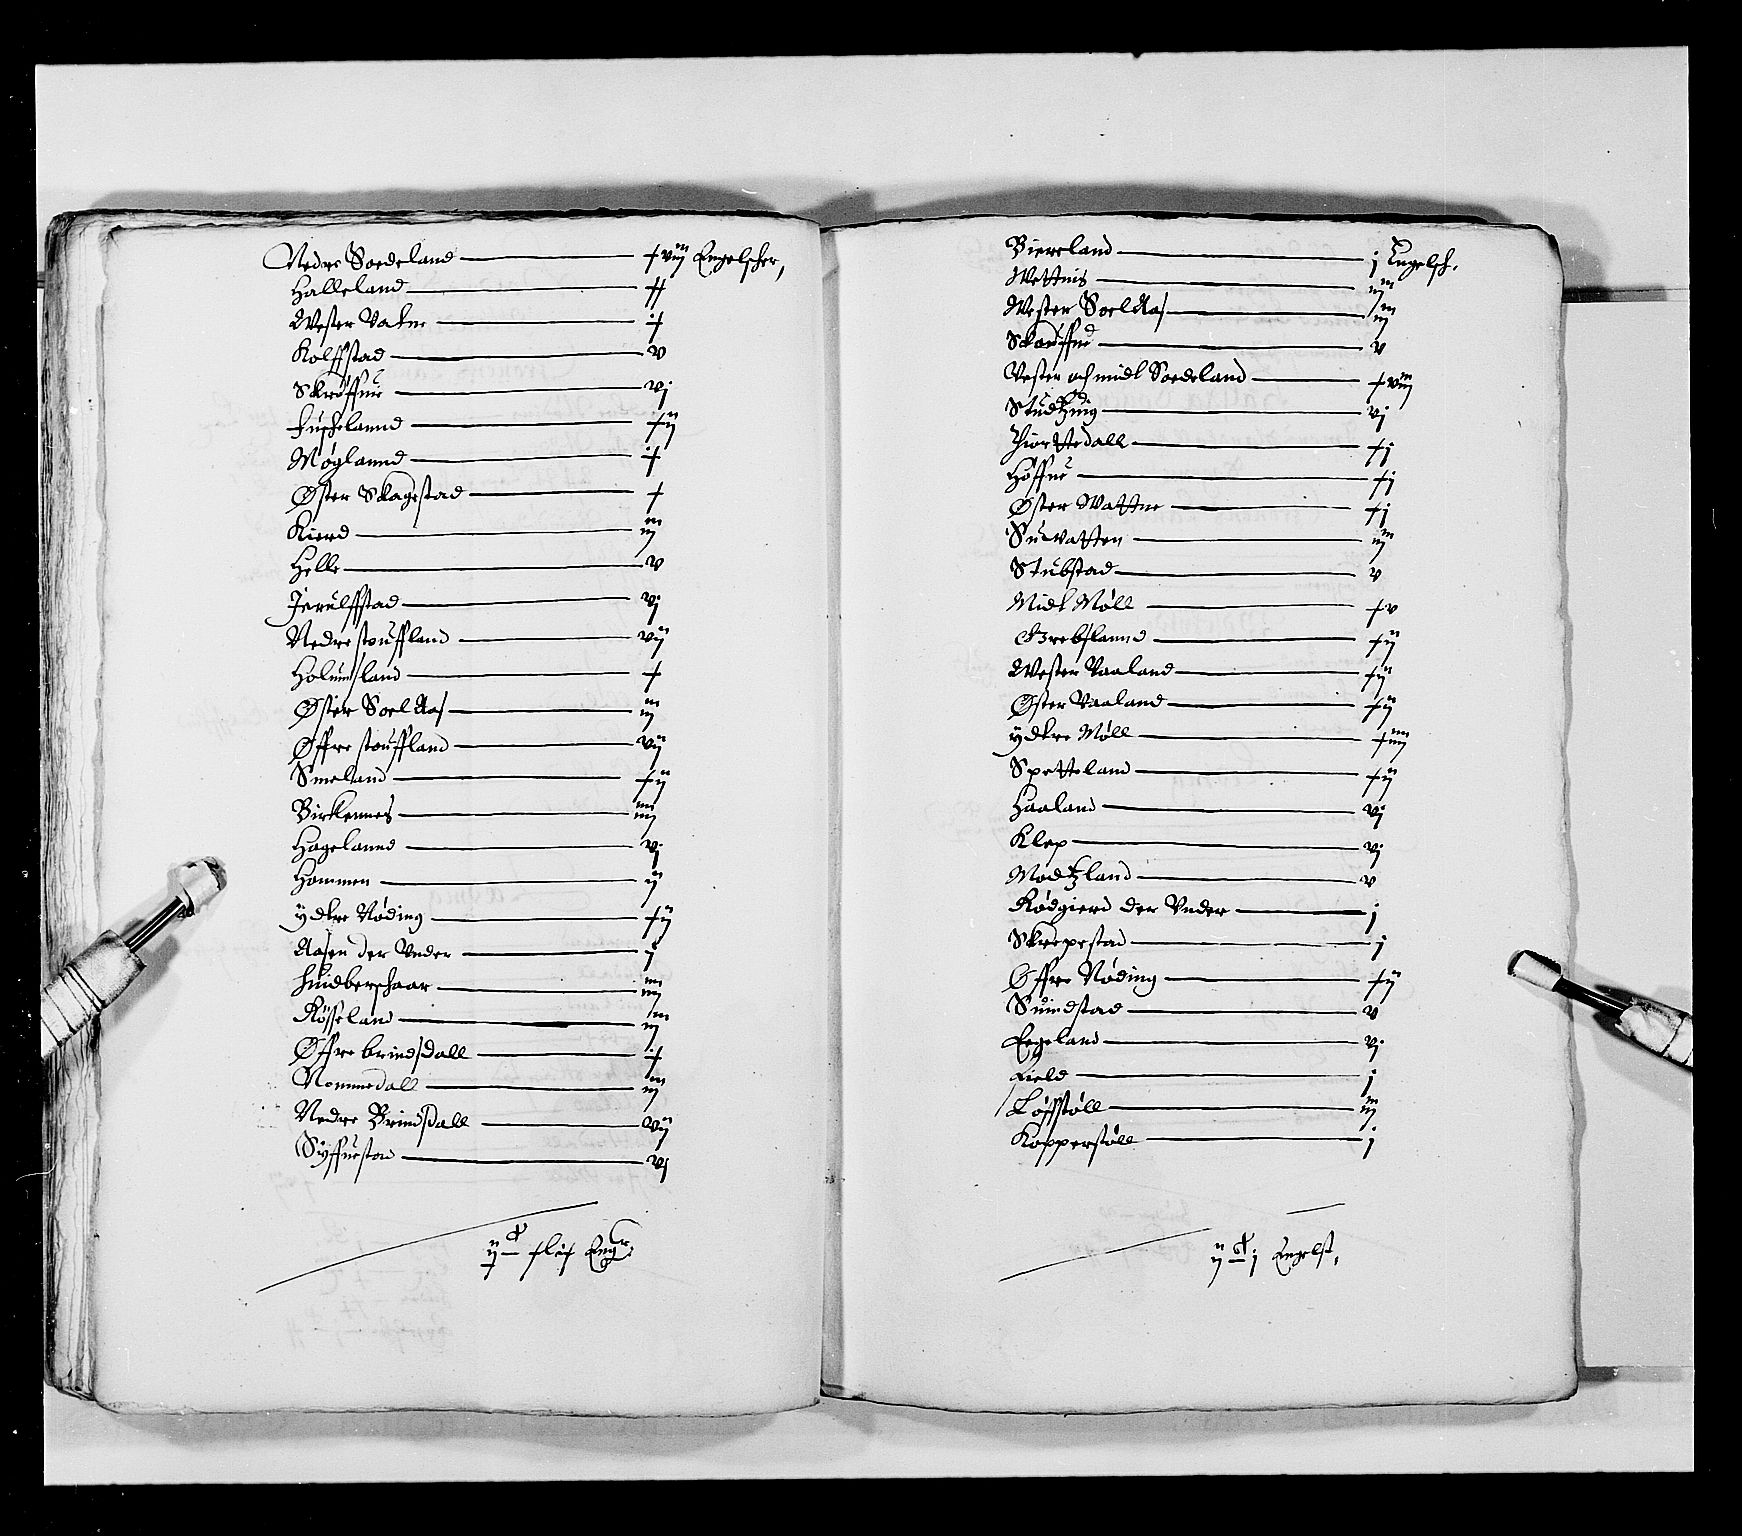 Nedre Soedeland — xviij Engelscher,
Halleland — xx
Wester Vatne — ix
Kolffstad — v
Skrøffue — vj
Fuskelannd — xij
Møglannd — ix
Øster Skagestad — x
Kierd — iij
Helle — v
Jerulffstad — vj
Nedre stouffland — vij
Holumsland — x
Øster Soel Aas — iij
Øffre stouffland — vij
Smeland — xij
Birkkennes — iiij
Hagelannd — vj
Hommen — ij
ydtre Nøding — xij
Aasen der Vnder — j
Huidberschaar — iiij
Røsseland — iij
Øffre brindsdall — ix
Nommedall — iij
Nedre Brindsdall — vij
Syffuestad — vj
Biereland — j Engelsch.
Wettnis — iij
Wester Soel Aas — iij
Skouffue — v
Vester och midl Soedeland — xviij
Studtzuig — vj
Hiorttedall — xj
Høffue — xj
Øster Wattne — xj
Suewatten — iij
Stubstad — v
Midl Møll — xv
Grebslannd — xij
Wester Vaaland — xij
Øster Vaaland — xij
ydtre Møll — xiiij
Spetteland — xij
Haaland — vj
Klep — vj
Modtzland — v
Rødgierd der Vnder — j
Skreppestad — j
Øffre Nøding — xij
Suindstad — v
Eegeland — vj
Lield — j
Løffstøll — iij
Kopperstøll — j
ij j Engelst.